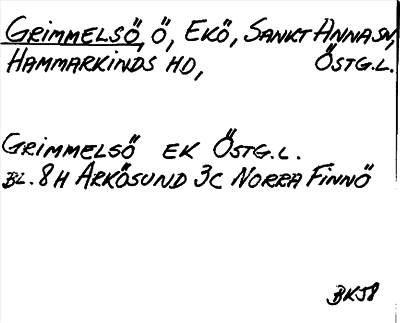 GRIMMELSÖ, Ö, EKÖ, SANKT ANNA SN,
HAMMARKINDS HD, ÖSTG.L.
GRIMMELSÖ EK ÖSTG.L.
BL. 8H ARKÖSUND 3C NORRA FINNÖ
BKJ8